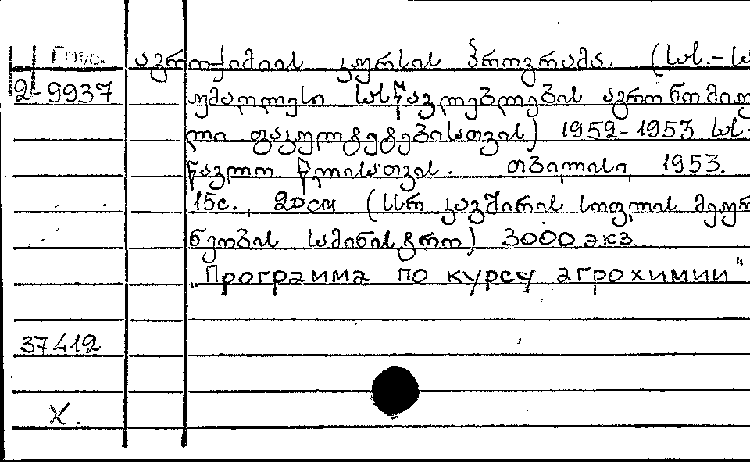 აგროქიმიის კურსის პროგრამა. (სას.-სა
2-9937 უმაღლესი სასწავლებლების აგრონომიუ
ლი ფაკულტეტებისათვის) 1952-1953 სას-
წავლო წლისათვის. თბილისი, 1953.
15с., 20см (სსრ კავშირის სოფლის მეურ
ნეობის სამინისტრო) 3000 экз
"Программа по курсу агрохимии"
37412
X.